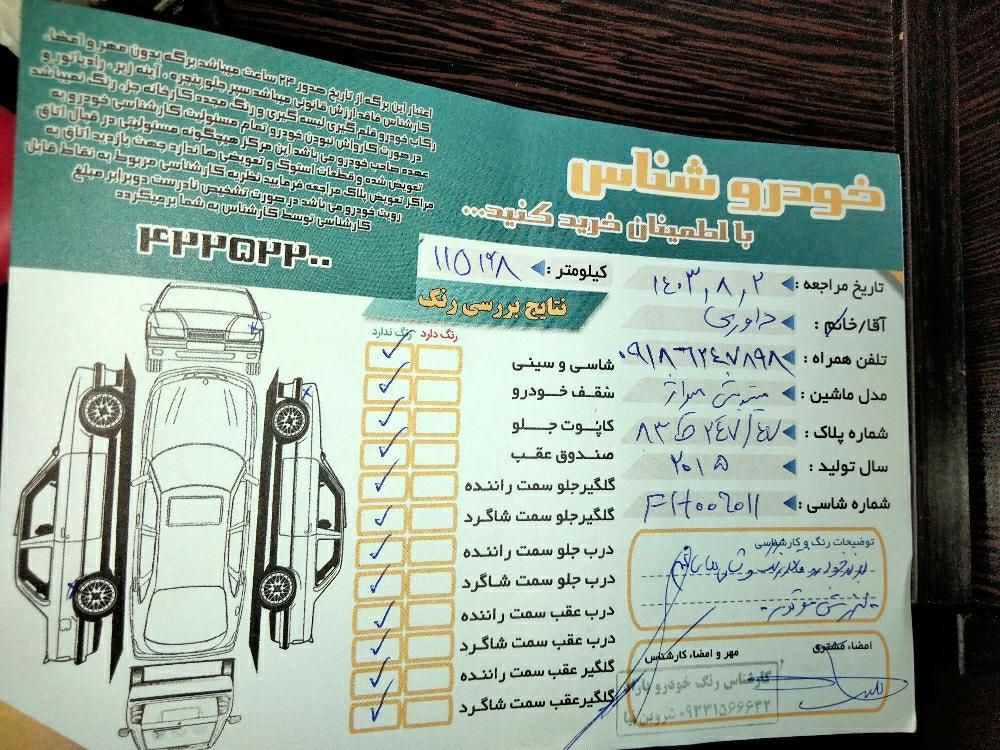 خودرو شناس
با اطمینان خرید کنید...
اعتبار این برگه از تاریخ صدور ۲۴ ساعت میباشد برگه بدون مهر و امضا،
کارشناس فاقد ارزش قانونی میباشد سپر جلو پنجره، آینه زیر، رادیاتور و
رکاب خودرو قلم گیری لیسه گیری و رنگ مجدد کارخانه جزء رنگ نمیباشد
در صورت کارواش نبودن خودرو تمام مسئولیت کارشناسی خودرو به
عهده صاحب خودرو می باشد این مرکز هیچگونه مسئولیتی در قبال اتاق
تعویض شده و قطعات استوک و تعویضی ها ندارد جهت بازدید اتاق به
مراکز تعویض پلاک مراجعه فرمایید نظریه کارشناسی مربوط به نقاط قابل
رویت خودرو می باشد در صورت تشخیص نادرست دوبرابر مبلغ
کارشناسی توسط کارشناس به شما برمیگردد
۴۲۲۵۲۲۰۰
تاریخ مراجعه : ۱۴۰۳,۸,۲
کیلومتر : ۱۱۵۱۶۸
آقا/خانم : داوری
تلفن همراه : ۰۹۱۸۶۲۴۷۸۹۸
مدل ماشین : میتسوبیشی میراژ
شماره پلاک : ۸۳ ط ۲۴۷/۴۷
سال تولید : ۲۰۱۵
شماره شاسی : FH006011
نتایج بررسی رنگ
رنگ دارد رنگ ندارد
شاسی و سینی
سقف خودرو
کاپوت جلو
صندوق عقب
گلگیر جلو سمت راننده
گلگیر جلو سمت شاگرد
درب جلو سمت راننده
درب جلو سمت شاگرد
درب عقب سمت راننده
درب عقب سمت شاگرد
گلگیر عقب سمت راننده
گلگیر عقب سمت شاگرد
توضیحات رنگ و کارشناسی
امضاء مشتری
مهر و امضاء کارشناس
کارشناس رنگ خودرو
۰۹۳۳۱۵۶۶۶۳۲